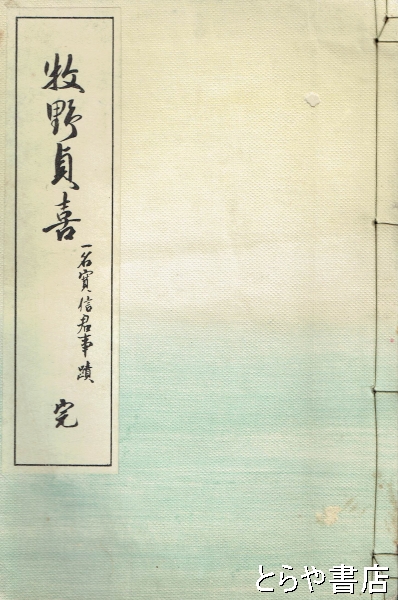 牧野貞喜
一名實信君事蹟
完
とらや書店